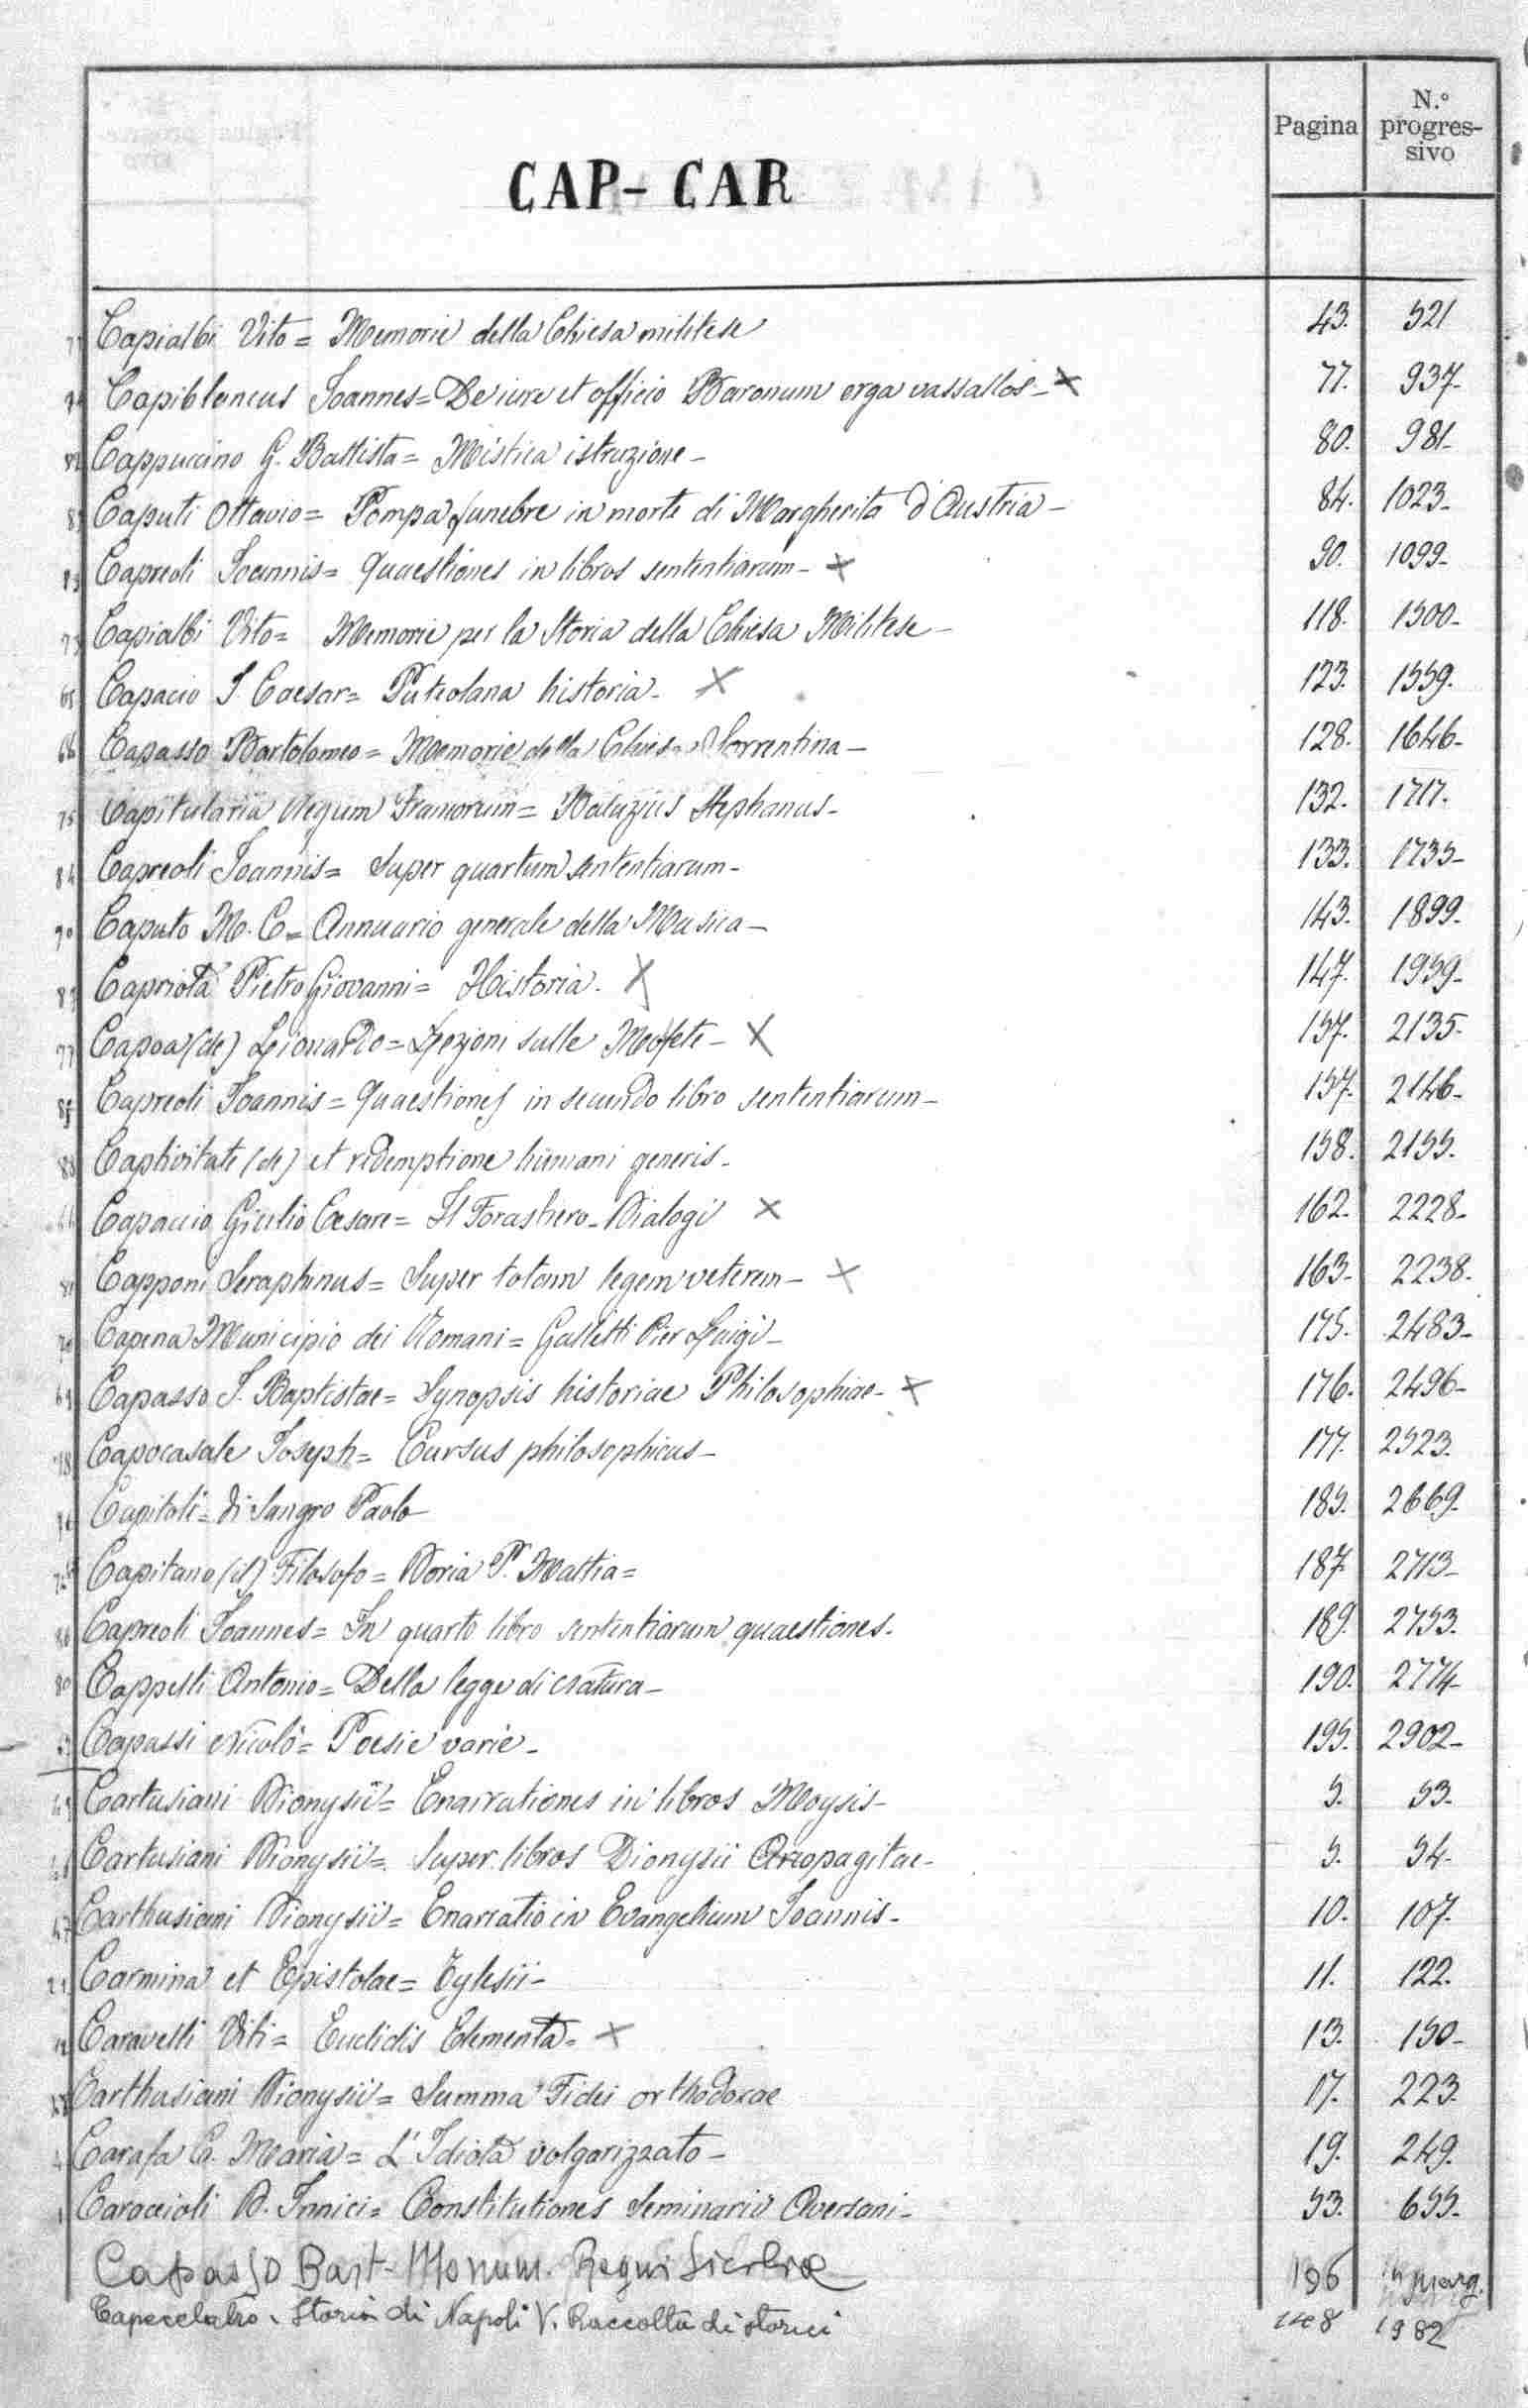 Pagina N.º progres-sivo
CAP - CAR
Capialbi Vito = Memorie della Chiesa militese 43. 521
Capiblancus Joannes = De iure et officio Baronum erga vassallos - x 77. 937-
Cappuccino G. Battista = Mistica istruzione - 80. 981-
Caputi Ottavio = Pompa funebre in morte di Margherita d'Austria - 84. 1023-
83 Capreoli Joannis = Quaestiones in libros sententiarum - x 90. 1099-
73 Capialbi Vito = Memorie per la Storia della Chiesa Militese - 118. 1500-
65 Capacio J. Caesar = Puteolana historia - x 123. 1559.
66 Capasso Bartolomeo = Memorie della Chiesa Sorrentina - 128. 1646-
75 Capitularia Regum Francorum = Baluzius Stephanus - 132. 1717.
84 Capreoli Joannis = Super quartum sententiarum - 133. 1735-
Caputo M. C = Annuario generale della Musica - 143. 1899-
Capriota Pietro Giovanni = Historia. x 147. 1959-
77 Capoa (de) Lionardo = Lezioni sulle Mofete - x 157. 2135-
Capreoli Joannis = Quaestiones in secundo libro sententiarum - 157. 2146-
Captivitate (de) et redemptione humani generis - 158. 2155.
Capaccio Giulio Cesare = Il Forastiero - Dialogi x 162. 2228-
81 Capponi Seraphinus = Super totam legem veterem - x 163- 2238.
Capena Municipio dei Romani = Galletti Pier Luigi - 175. 2483-
Capasso J. Baptistae = Synopsis historiae Philosophiae - x 176. 2496-
78 Capocasale Joseph = Cursus philosophicus - 177. 2523.
Capitoli = di Sangro Paolo 185. 2669.
Capitano (il) Filosofo = Doria P. Mattia = 187 2713-
86 Capreoli Joannes = In quarto libro sententiarum quaestiones. 189. 2753.
80 Cappelli Antonio = Della legge di natura - 190. 2774-
Capassi Nicolò = Poesie varie - 195. 2902-
Cartusiani Dionysii = Enarrationes in libros Moysis - 5. 53.
Cartusiani Dionysii = Super libros Dionysii Areopagitae - 5. 54-
47 Carthusiani Dionysii = Enarratio in Evangelium Joannis - 10. 107.
Carmina et Epistolae = Tylesii - 11. 122.
12 Caravelli Viti = Euclidis Elementa - x 13. 150-
Carthusiani Dionysii = Summa Fidei orthodoxae 17. 223.
4 Carafa C. Maria = L'Idiota volgarizzato - 19. 249.
1 Caraccioli D. Innici = Constitutiones Seminarii Aversani - 53. 655-
Capasso Bart - Monum. Regni Siciliae 196 marg.
Capecelatro - Storia di Napoli V. Raccolta di storici 148 1982